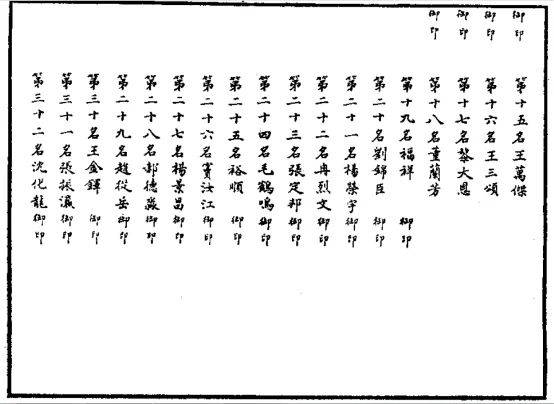 第十五名王萬傑
御印
第十六名王三頌
御印
第十七名黎大恩
御印
第十八名董蘭芳
御印
第十九名福祥 御印
第二十名劉錦臣 御印
第二十一名楊榮宇 御印
第二十二名冉烈文 御印
第二十三名張定邦 御印
第二十四名毛鶴鳴 御印
第二十五名裕順 御印
第二十六名竇汝江 御印
第二十七名楊景昌 御印
第二十八名郝德淼 御印
第二十九名趙從岳 御印
第三十名王金鐸 御印
第三十一名張振瀛 御印
第三十二名沈化龍 御印